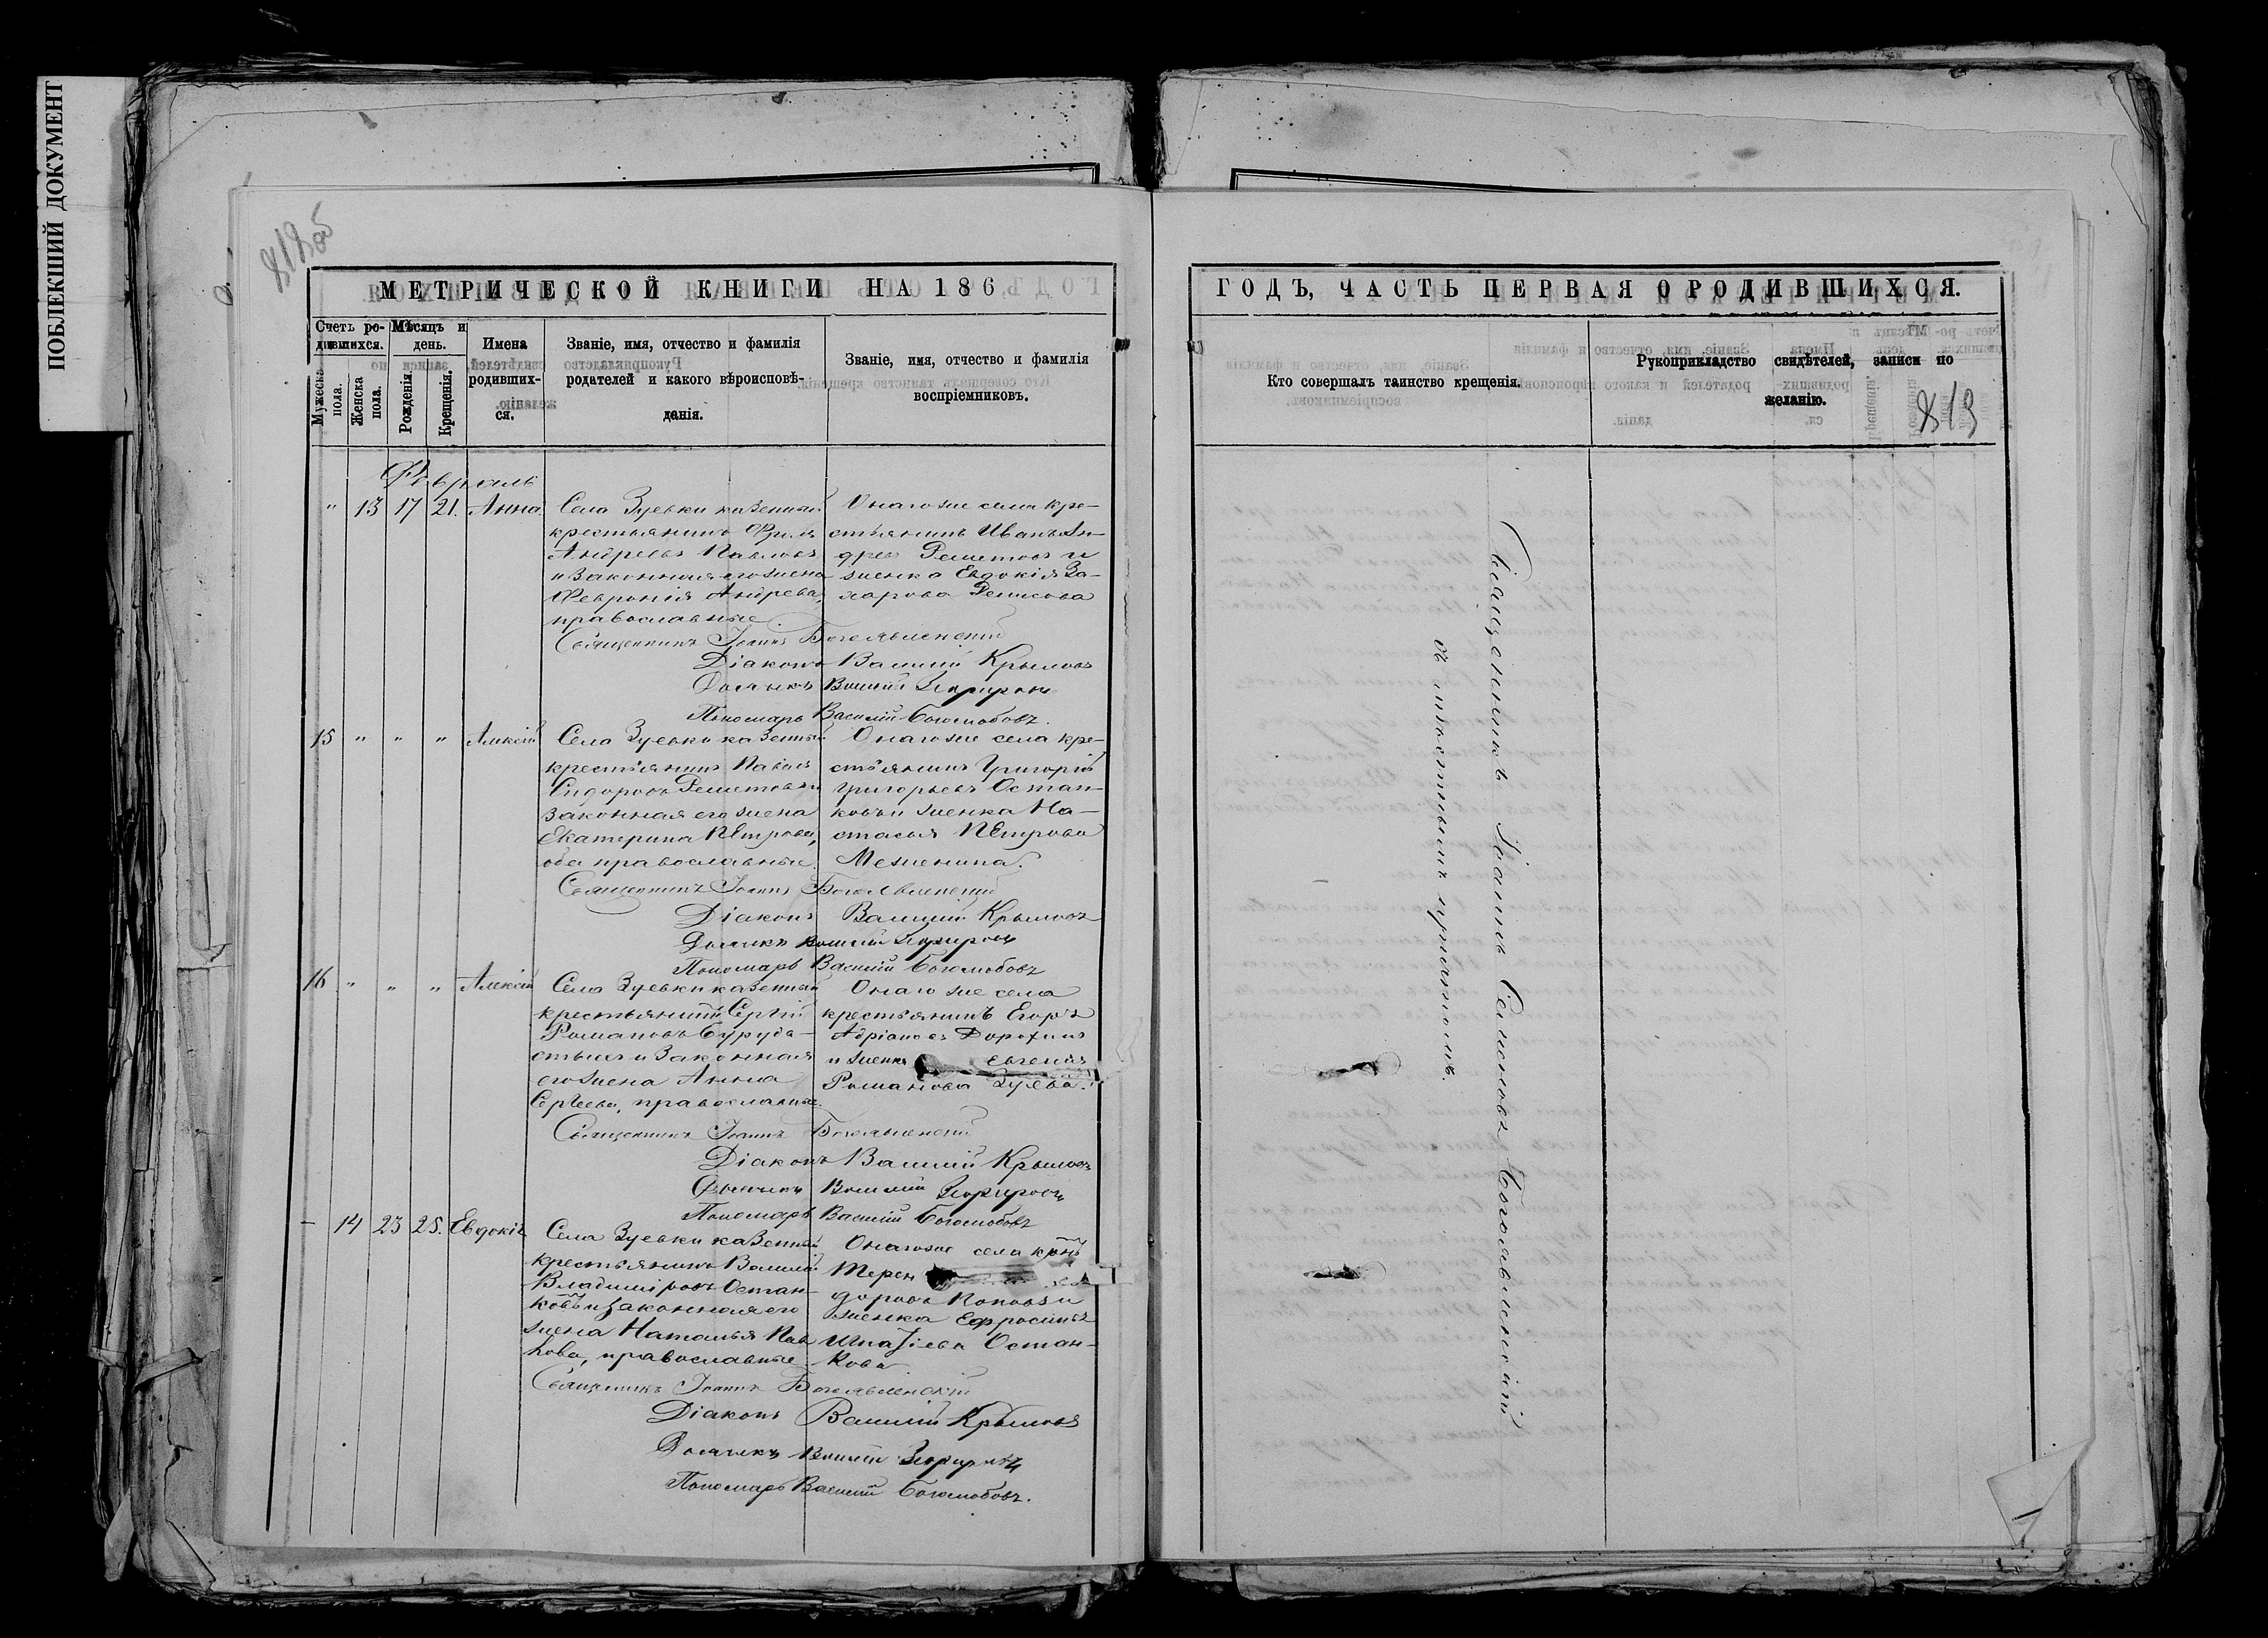 ПОБЛЕКШИЙ ДОКУМЕНТ
МЕТРИЧЕСКОЙ КНИГИ НА 186
Счетъ ро-
дившихся.
Мѣсяцъ и
день.
Мужеска
пола.
Женска
пола.
Рожденія.
Крещенія.
Имена
родивших-
ся.
Званіе, имя, отчество и фамилія
родителей и какого вѣроисповѣ-
данія.
Званіе, имя, отчество и фамилія
воспріемниковъ.
Февраль
" 13 17 21. Анна
Села Зуевки казенный
крестьянинъ
Андреевъ Павловъ
и законная его жена
Феврoнія Андрева,
православные.
Онагоже села кре-
стьянинъ Иванъ Ан-
древъ Решетовъ и
женка Евдокія За-
харова
Священникъ Іоаннъ Богоявленскій
Діаконъ Василій Крыловъ
Дьячекъ Василій
Пономарь Василій Боголюбовъ.
15 " " " Алексій
Села Зуевки казенный
крестьянинъ Павелъ
Сидоровъ Решетовъ и
законная его жена
Екатерина Петрова,
оба православные.
Онагоже села кре-
стьянинъ Григорій
Григорьевъ Остан-
ковъ и женка На-
стасья Петрова
Меженина.
Священникъ Іоаннъ Богоявленскій
Діаконъ Василій Крыловъ
Дьячекъ Василій
Пономарь Василій Боголюбовъ
16 " " " Алексій
Села Зуевки казенный
крестьянинъ Сергій
Романовъ
и законная
его жена Анна
Сергеева, православные.
Онагоже села
крестьянинъ Егоръ
Адріановъ
и женка Евгенія
Романова Зуева.
Священникъ Іоаннъ Богоявленскій
Діаконъ Василій Крыловъ
Дьячекъ Василій
Пономарь Василій Боголюбовъ
— 14 23 25. Евдокія
Села Зуевки казенный
крестьянинъ Василій
Владиміровъ Остан-
ковъ и законная его
жена Наталья Пав
лова, православные.
Онагоже села
Терен
доровъ Поповъ и
женка Ефросинья
Игнатіева Остан-
кова
Священникъ Іоаннъ Богоявленскій
Діаконъ Василій Крыловъ
Дьячекъ Василій
Пономарь Василій Боголюбовъ.
ГОДЪ, ЧАСТЬ ПЕРВАЯ О РОДИВШИХСЯ.
Кто совершалъ таинство крещенія.
Рукоприкладство свидѣтелей, записи по
желанію.
813
Священникъ Іоаннъ Семеновъ Богоявленскій
съ мѣстнымъ причтомъ.